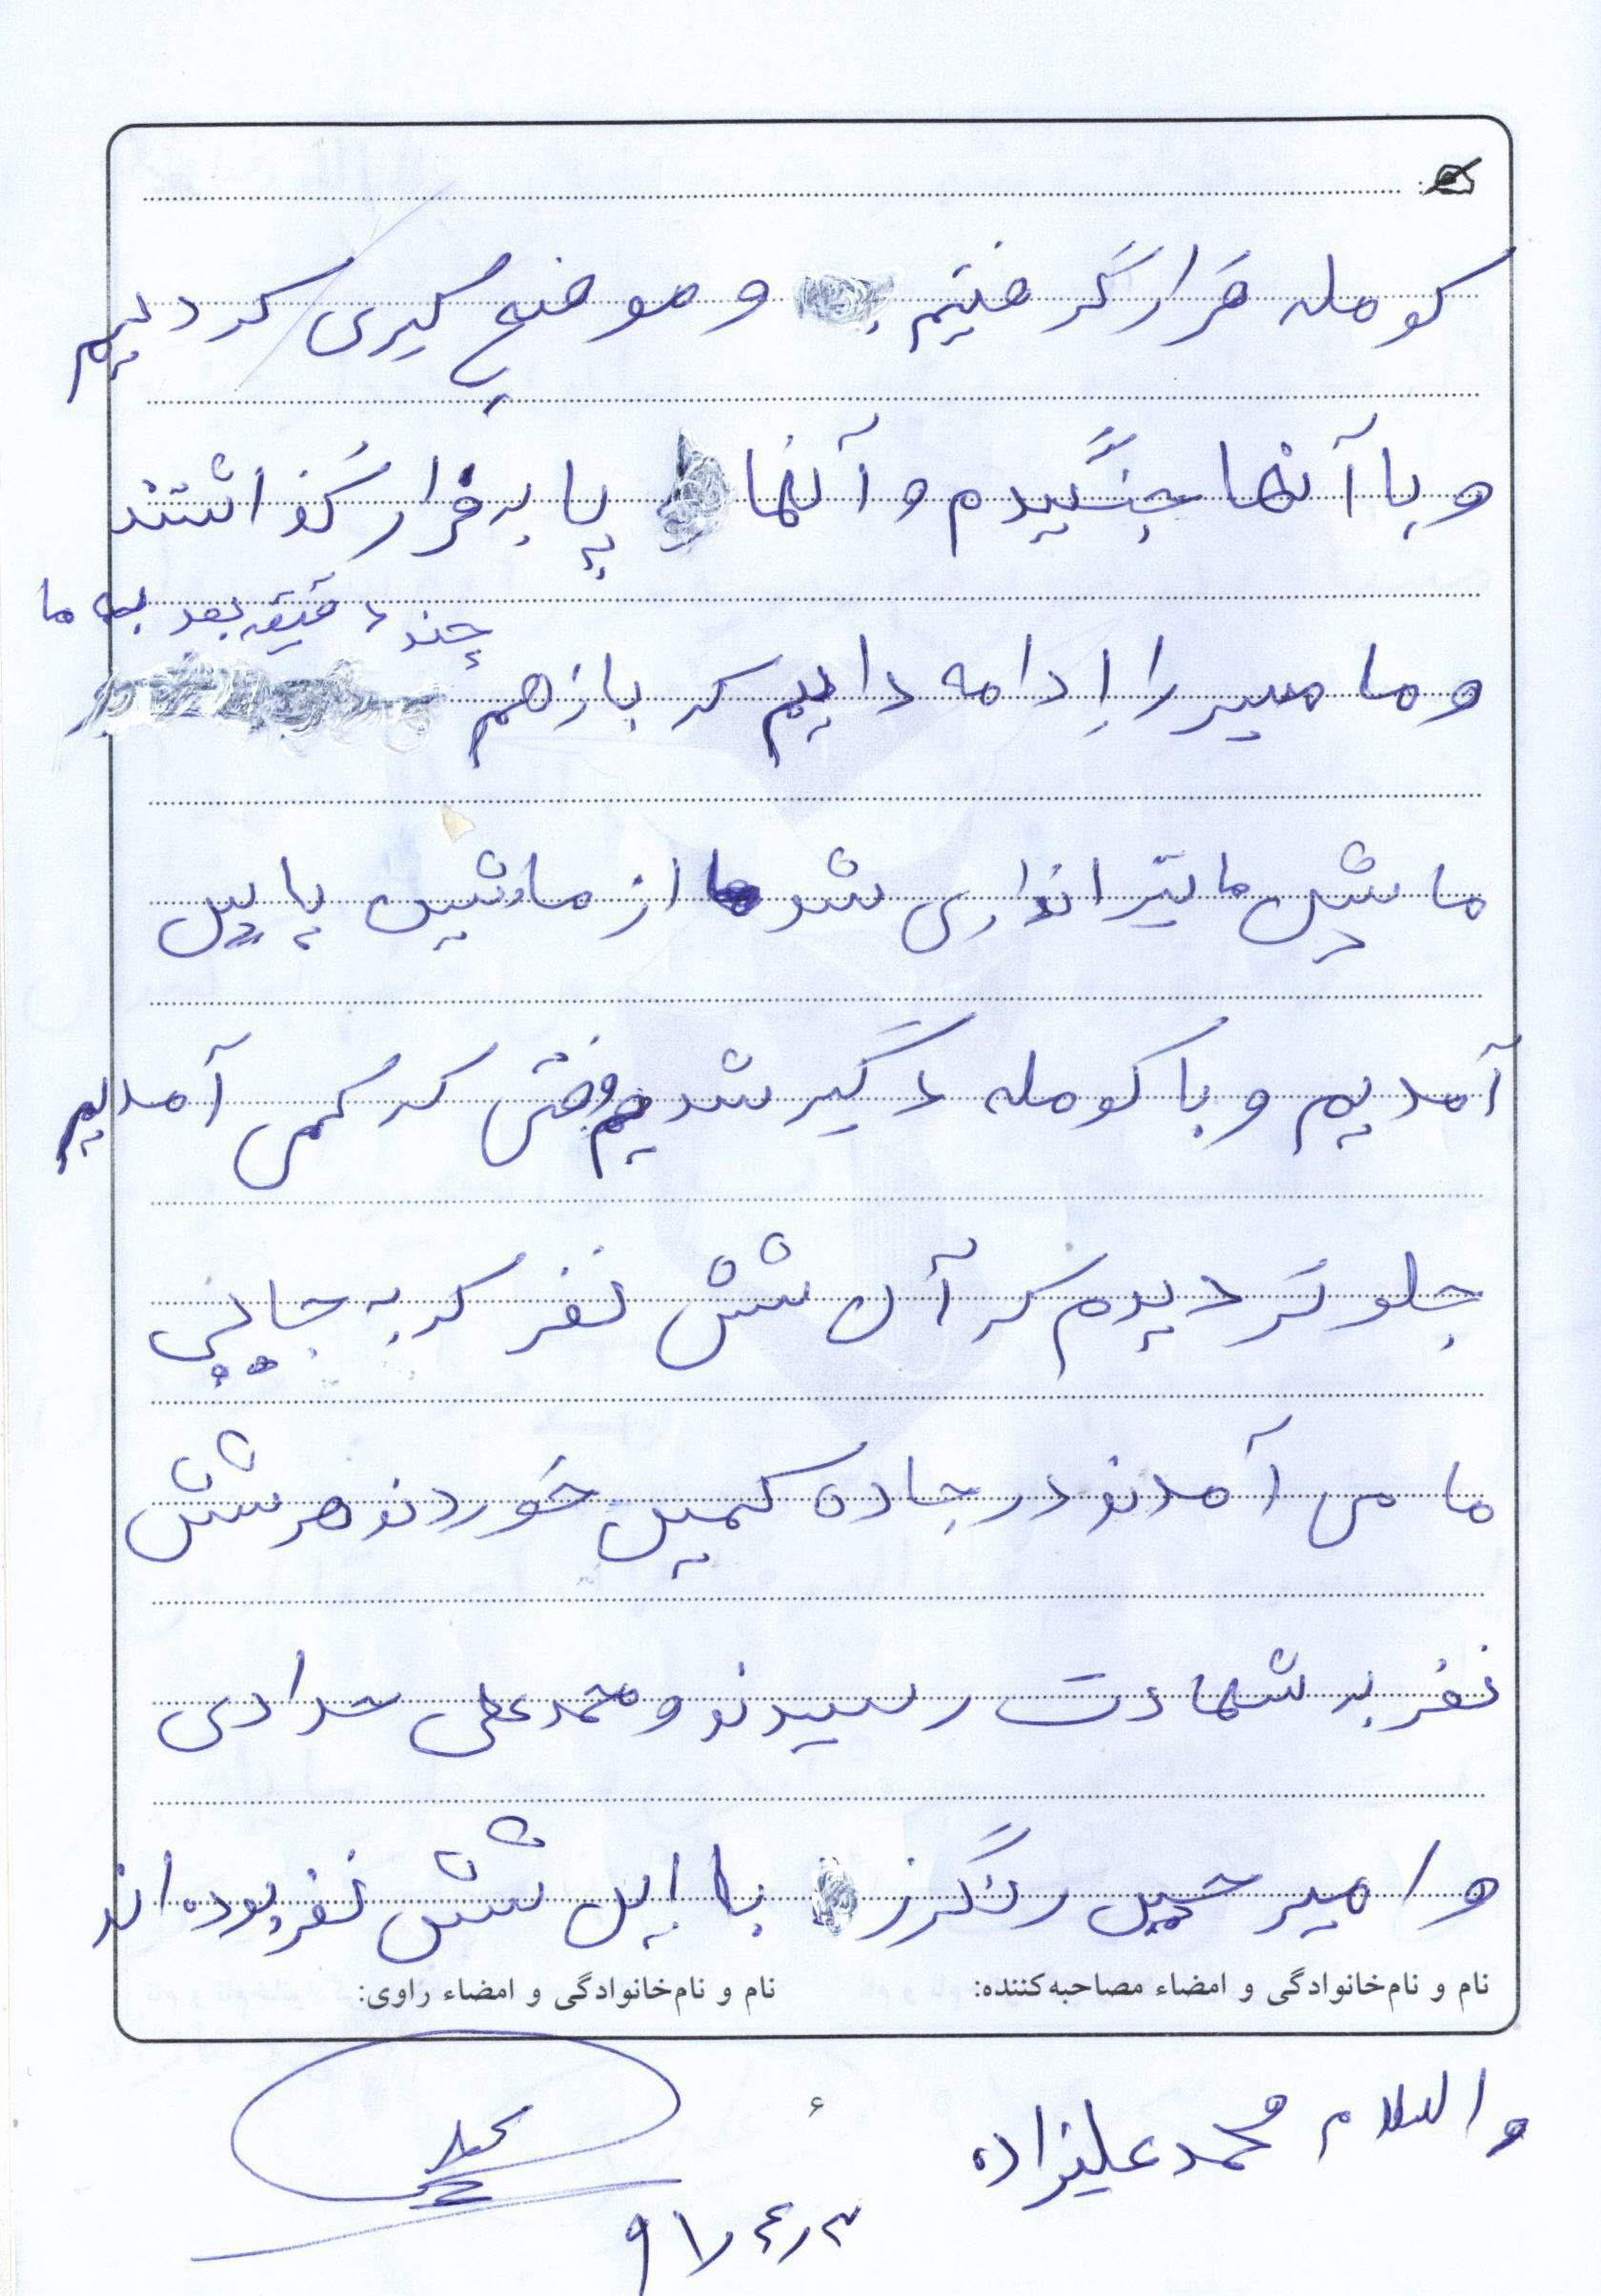 کومله قرار گرفتیم و موضع گیری کردیم
و با آنها جنگیدم و آنها پا به فرار گذاشتند
چند دقیقه بعد به ما
و ما مسیر را ادامه دایم که بازهم
ماشین ما تیراندازی شد ما از ماشین پایین
آمدیم و با کومله دگیر شدیم وقتی که کمی آمدیم
جلو تر دیدم که آن شش نفر که به جایی
ما می آمدند در جاده کمین خوردند هر شش
نفر به شهادت رسیدند و محمد علی حدادی
و امیر حسین رنگرز با این شش نفر بوده اند
نام و نام‌خانوادگی و امضاء مصاحبه‌کننده: نام و نام‌خانوادگی و امضاء راوی:
والسلام محمد علیزاده
۶
۹۷٫۴٫۳